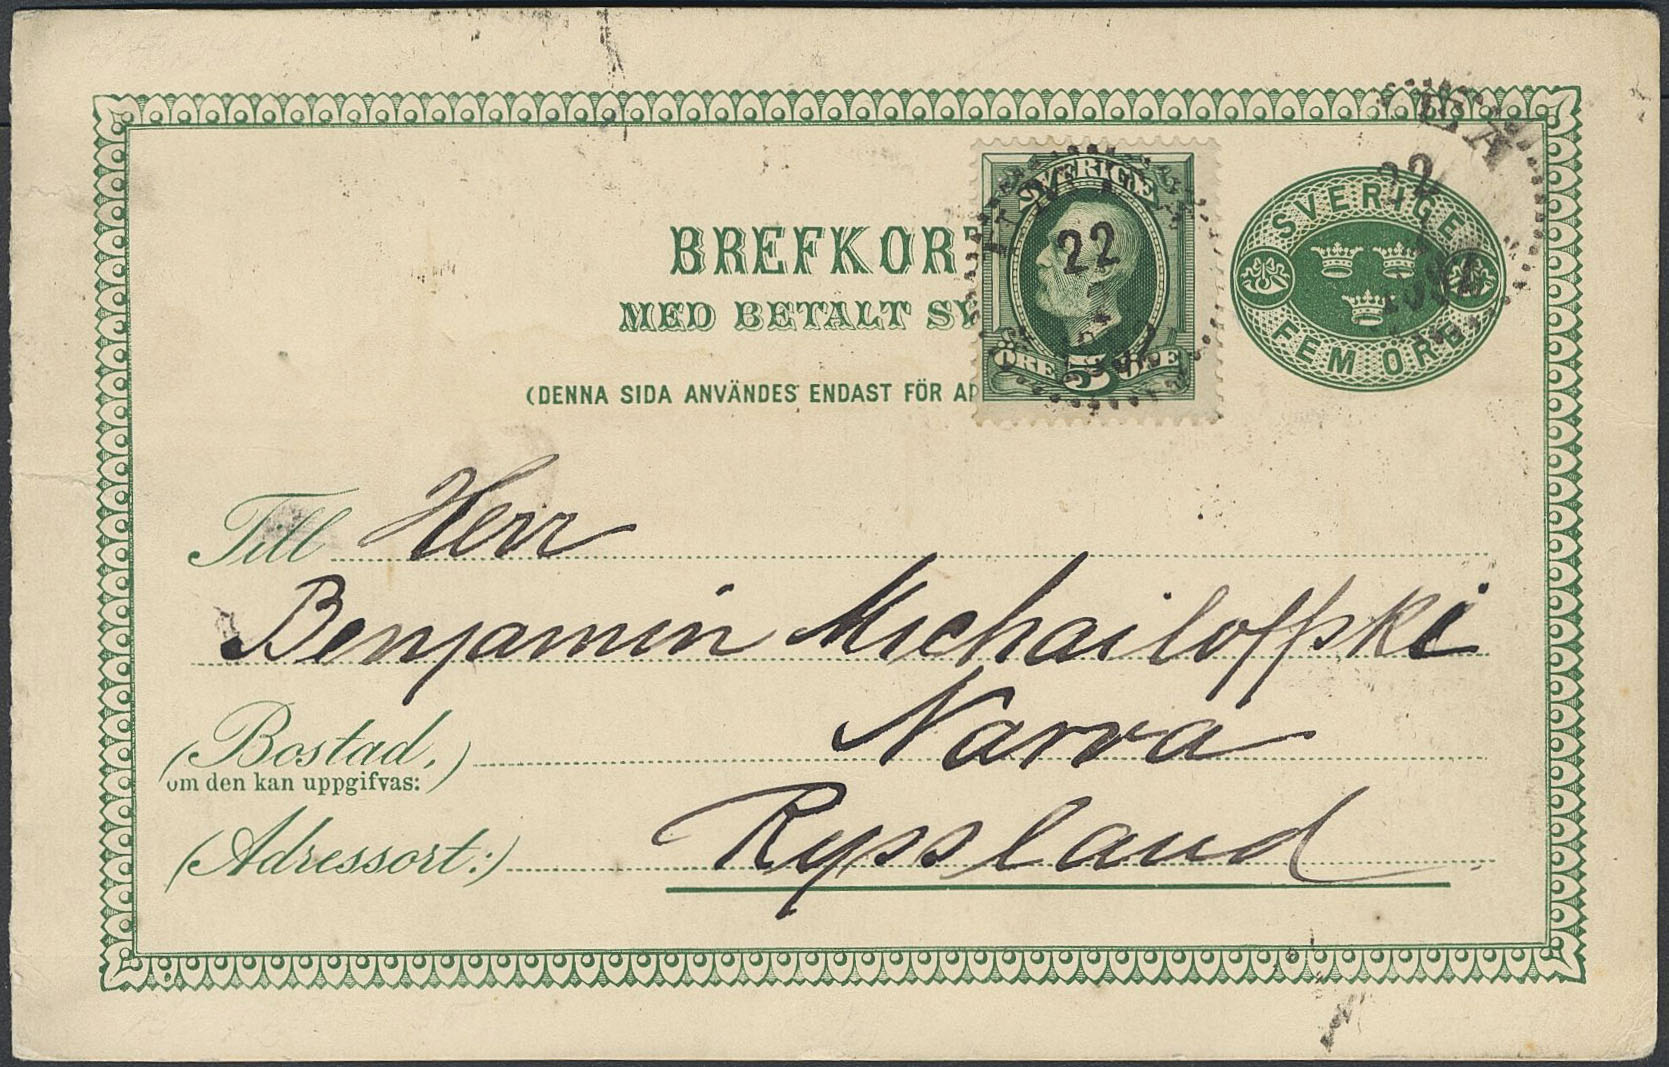 BREFKORT
MED BETALT SV
(DENNA SIDA ANVÄNDES ENDAST FÖR AD
SVERIGE
22
ÖRE 5 ÖRE
SVERIGE
FEM ÖRE
22
Till Herr
Benjamin Michailoffski
(Bostad,) Narva
om den kan uppgifvas:
(Adressort:) Ryssland